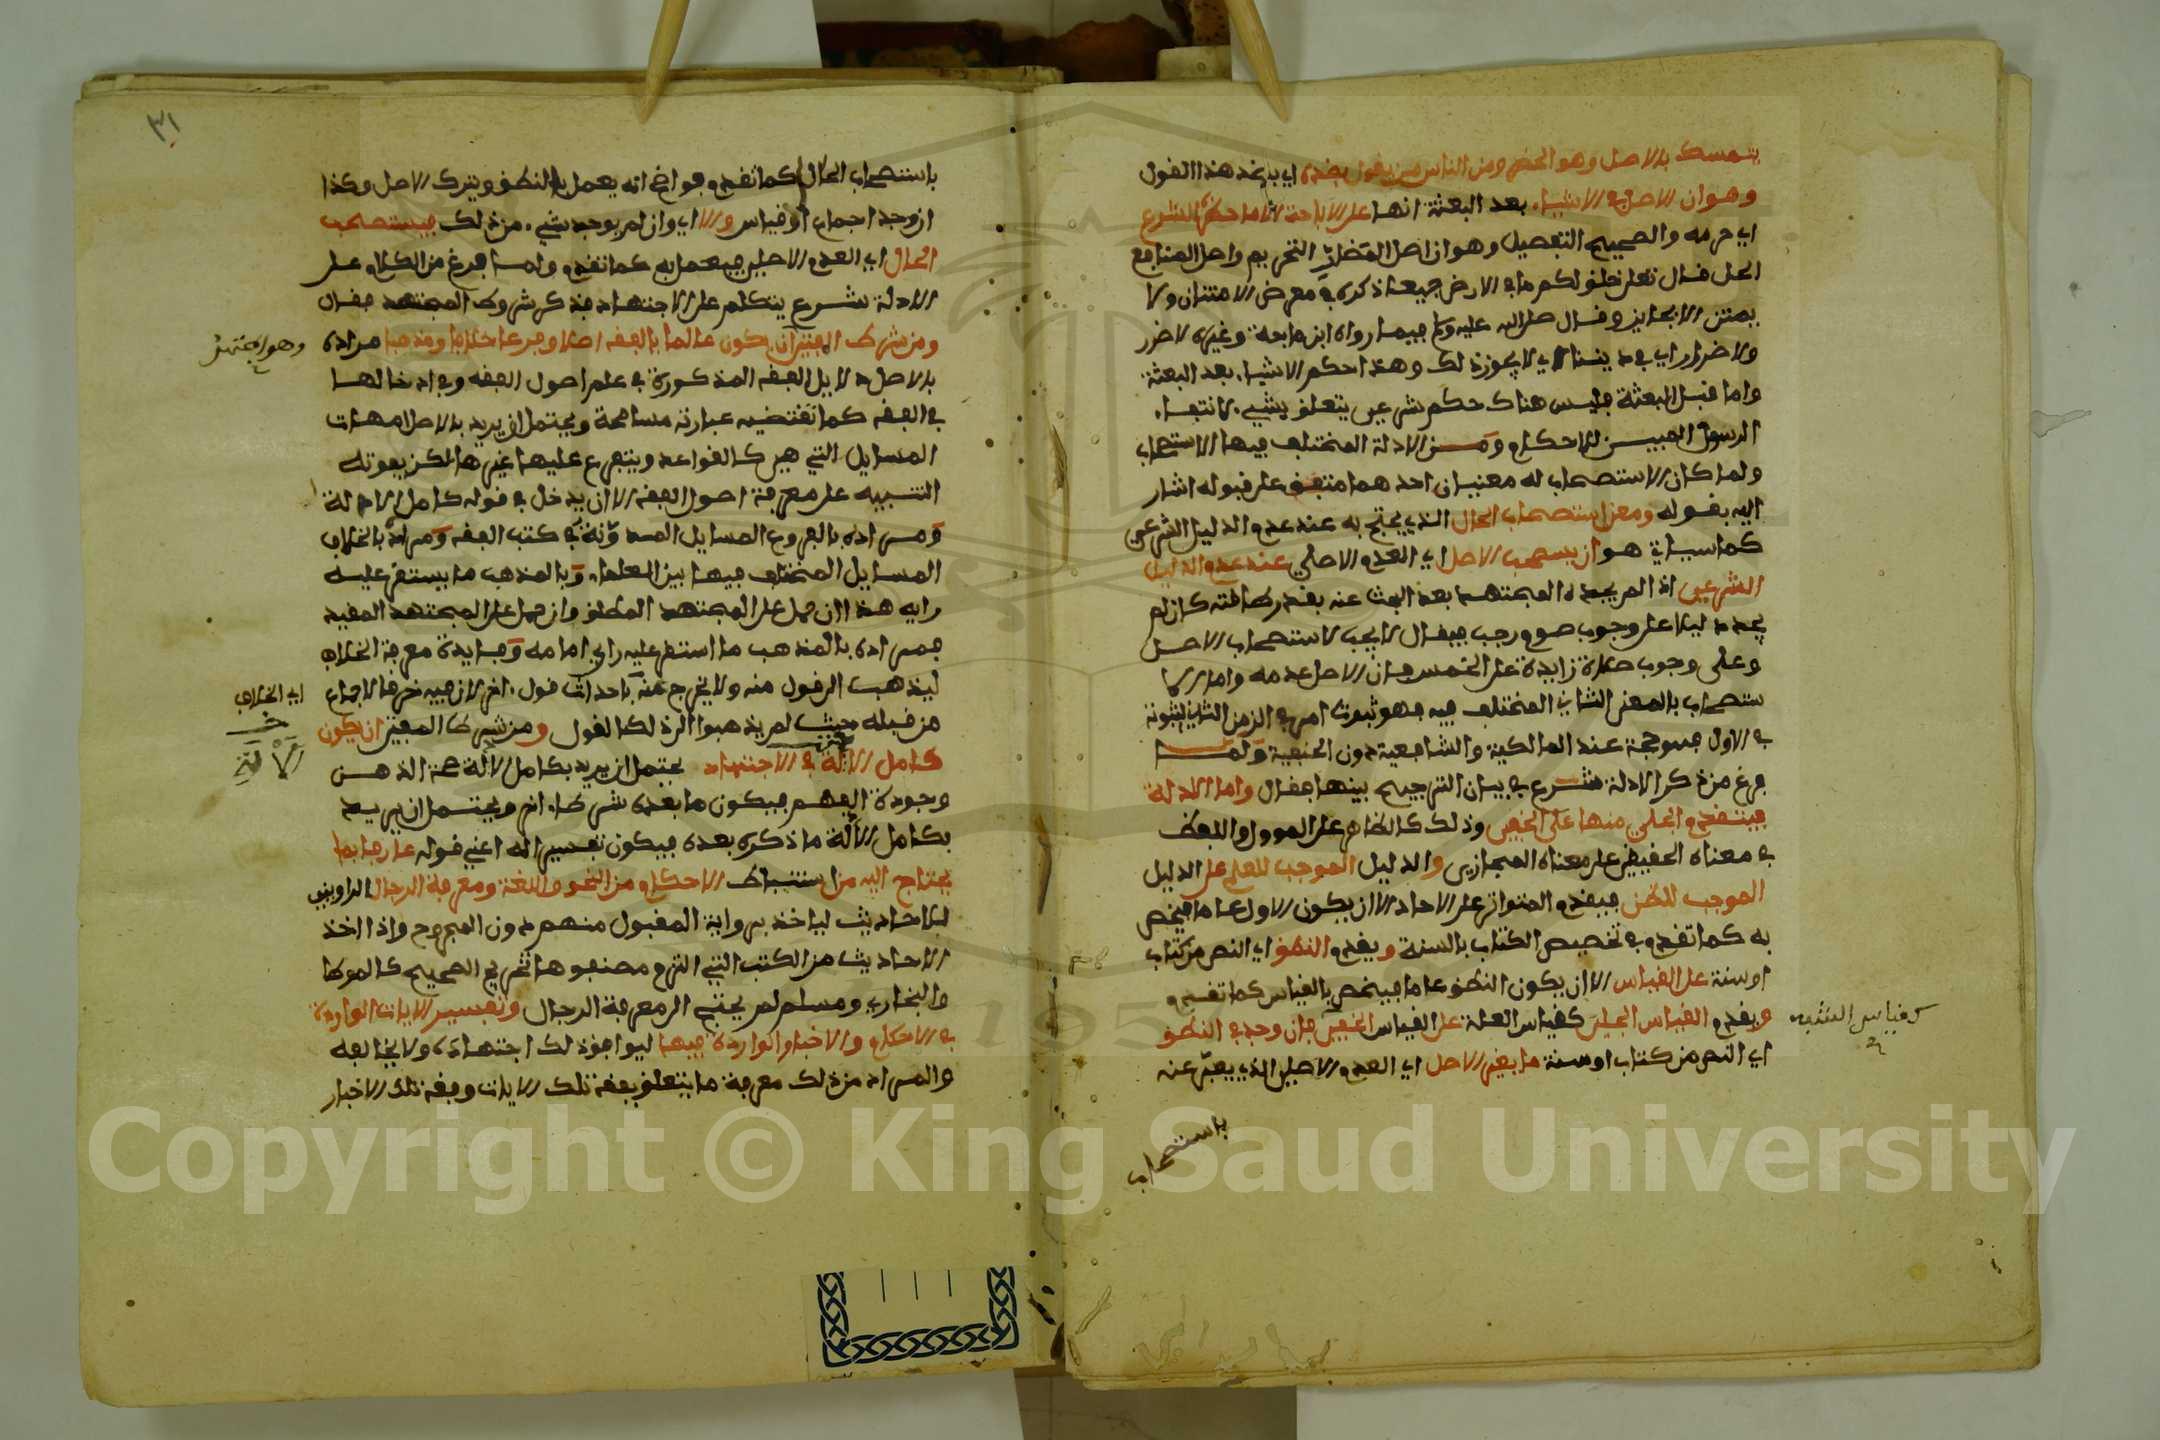 يتمسك بالاصل وهو الحظر ومن الناس من يقول بضده اي بضد هذا القول
وهو ان الاصل في الاشياء بعد البعثة انها على الاباحة الا ما حظره الشرع
اي حرمه والصحيح التفصيل وهو ان اصل المضار التحريم واصل المنافع
الحل قال تعلى خلق لكم ما في الارض جميعا ذكره في معرض الامتنان ولا
يمتن الا بجايز وقال صلى الله عليه وسلم فيما رواه ابن ماجة وغيره لا ضرر
ولا ضرار اي في ديننا اي لا يجوز ذلك وهذا حكم الاشياء بعد البعثة
واما قبل البعثة فليس هناك حكم شرعي يتعلق بشيء لانتفاء
الرسول المبين للاحكام ومن الادلة المختلف فيها الاستصحاب
ولما كان الاستصحاب له معنيان احدهما متفق على قبوله اشار
اليه بقوله ومعنى استصحاب الحال الذي يحتج به عند عدم الدليل الشرعي
كما سياتي هو ان يستصحب الاصل اي العدم الاصلي عند عدم الدليل
الشرعي اذا لم يجده المجتهد بعد البحث عنه بقدر طاقته كان لم
يجد دليلا على وجوب صوم رجب فيقال لا يجب لاستصحاب الاصل
وعلى وجوب صلاة زايدة على الخمس فان الاصل عدمه واما الا
ستصحاب بالمعنى الثاني المختلف فيه فهو ثبوت امر في الزمن الثاني لثبوته
في الاول فهو حجة عند المالكية والشافعية دون الحنفية ولما
فرغ من ذكر الادلة شرع في بيان الترجيح بينها فقال واما الادلة
فيقدم الجلي منها على الخفي وذلك كالظاهر على المؤول واللفظ
في معناه الحقيقي على معناه المجازي والدليل الموجب للعلم على الدليل
الموجب للظن فيقدم المتواتر على الاحاد الا ان يكون الاول عاما فيخص
به كما تقدم في تخصيص الكتاب بالسنة ويقدم النطق اي النص من كتاب
او سنة على القياس الا ان يكون النطق عاما فيخص بالقياس كما تقدم
ويقدم القياس الجلي كقياس العلة على القياس الخفي فان وجد في النطق
كقياس الشبه
اي النص من كتاب او سنة ما يغير الاصل اي العدم الاصلي الذي يعبر عنه
باستصحاب
٣١
باستصحاب الحال كما تقدم فواضح انه يعمل بالنطق ويترك الاصل وكذا
ان وجد اجماع او قياس والا اي وان لم يوجد شيء من ذلك فيستصحب
الحال اي العدم الاصلي فيعمل به كما تقدم ولما فرغ من الكلام على
الادلة شرع يتكلم على الاجتهاد فذكر شروط المجتهد فقال
ومن شرط المفتي ان يكون عالما بالفقه اصلا وفرعا خلافا ومذهبا مراده
وهو المجتهد
بالاصل دلايل الفقه المذكورة في علم اصول الفقه وفي ادخالها
في الفقه كما تقتضيه عبارته مسامحة ويحتمل ان يريد بالاصل امهات
المسايل التي هي كالقواعد ويتفرع عليها غيرها لكن يفوته
التنبيه على معرفة اصول الفقه الا ان يدخل في قوله كامل الادلة
ومراده بالفروع المسايل المدونة في كتب الفقه ومراده بالخلاف
المسايل المختلف فيها بين العلماء وبالمذهب ما يستقر عليه
رايه هذا ان حمل على المجتهد المطلق وان حمل على المجتهد المقيد
فمراده بالمذهب ما استقر عليه راي امامه وفايدة معرفة الخلاف
ليذهب الى قول منه ولا يخرج عنه باحداث قول اخر لان فيه خرقا لاجماع
اي الخلاف
من قبله حيث لم يذهبوا الى ذلك القول ومن شرط المفتي ان يكون
كامل الالة في الاجتهاد يحتمل ان يريد بكامل الالة صحة الذهن
وجودة الفهم فيكون ما بعده شرطا اخر ويحتمل ان يريد
بكامل الالة ما ذكره بعده فيكون تفسيرا له اعني قوله عارفا بما
يحتاج اليه من استنباط الاحكام من النحو واللغة ومعرفة الرجال الراوين
للاحاديث لياخذ برواية المقبول منهم دون المجروح واذا اخذ
الاحاديث من الكتب التي التزم مصنفوها تخريج الصحيح كالموطا
والبخاري ومسلم لم يحتج الى معرفة الرجال وتفسير الايات الواردة
في الاحكام والاخبار الواردة فيها ليوافق ذلك اجتهاده ولا يخالفه
والمراد من ذلك معرفة ما يتعلق بفقه تلك الايات وفقه تلك الاخبار
Copyright © King Saud University